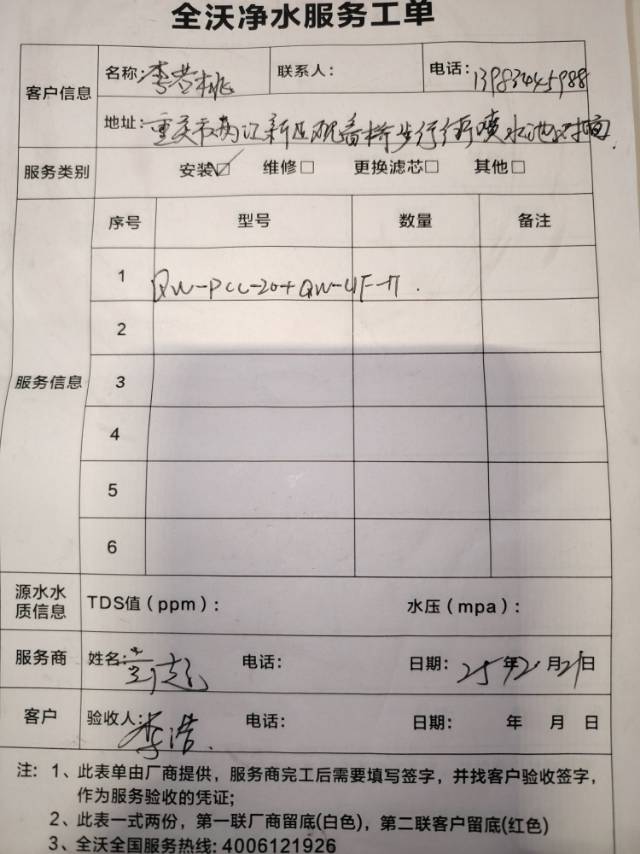 全沃净水服务工单
客户信息
名称: 李 桃 联系人: 电话: 13983445988
地址: 重庆市两江新区观音桥步行街喷水池对面
服务类别 安装☑ 维修□ 更换滤芯□ 其他□
服务信息
序号 型号 数量 备注
1 QW-PCC-20+QW-UF-
2
3
4
5
6
源水水质信息
TDS值(ppm): 水压(mpa):
服务商 姓名: 电话: 日期: 25年2月21日
客户 验收人: 李浩 电话: 日期: 年 月 日
注: 1、此表单由厂商提供，服务商完工后需要填写签字，并找客户验收签字，
作为服务验收的凭证;
2、此表一式两份，第一联厂商留底(白色)，第二联客户留底(红色)
3、全沃全国服务热线: 4006121926